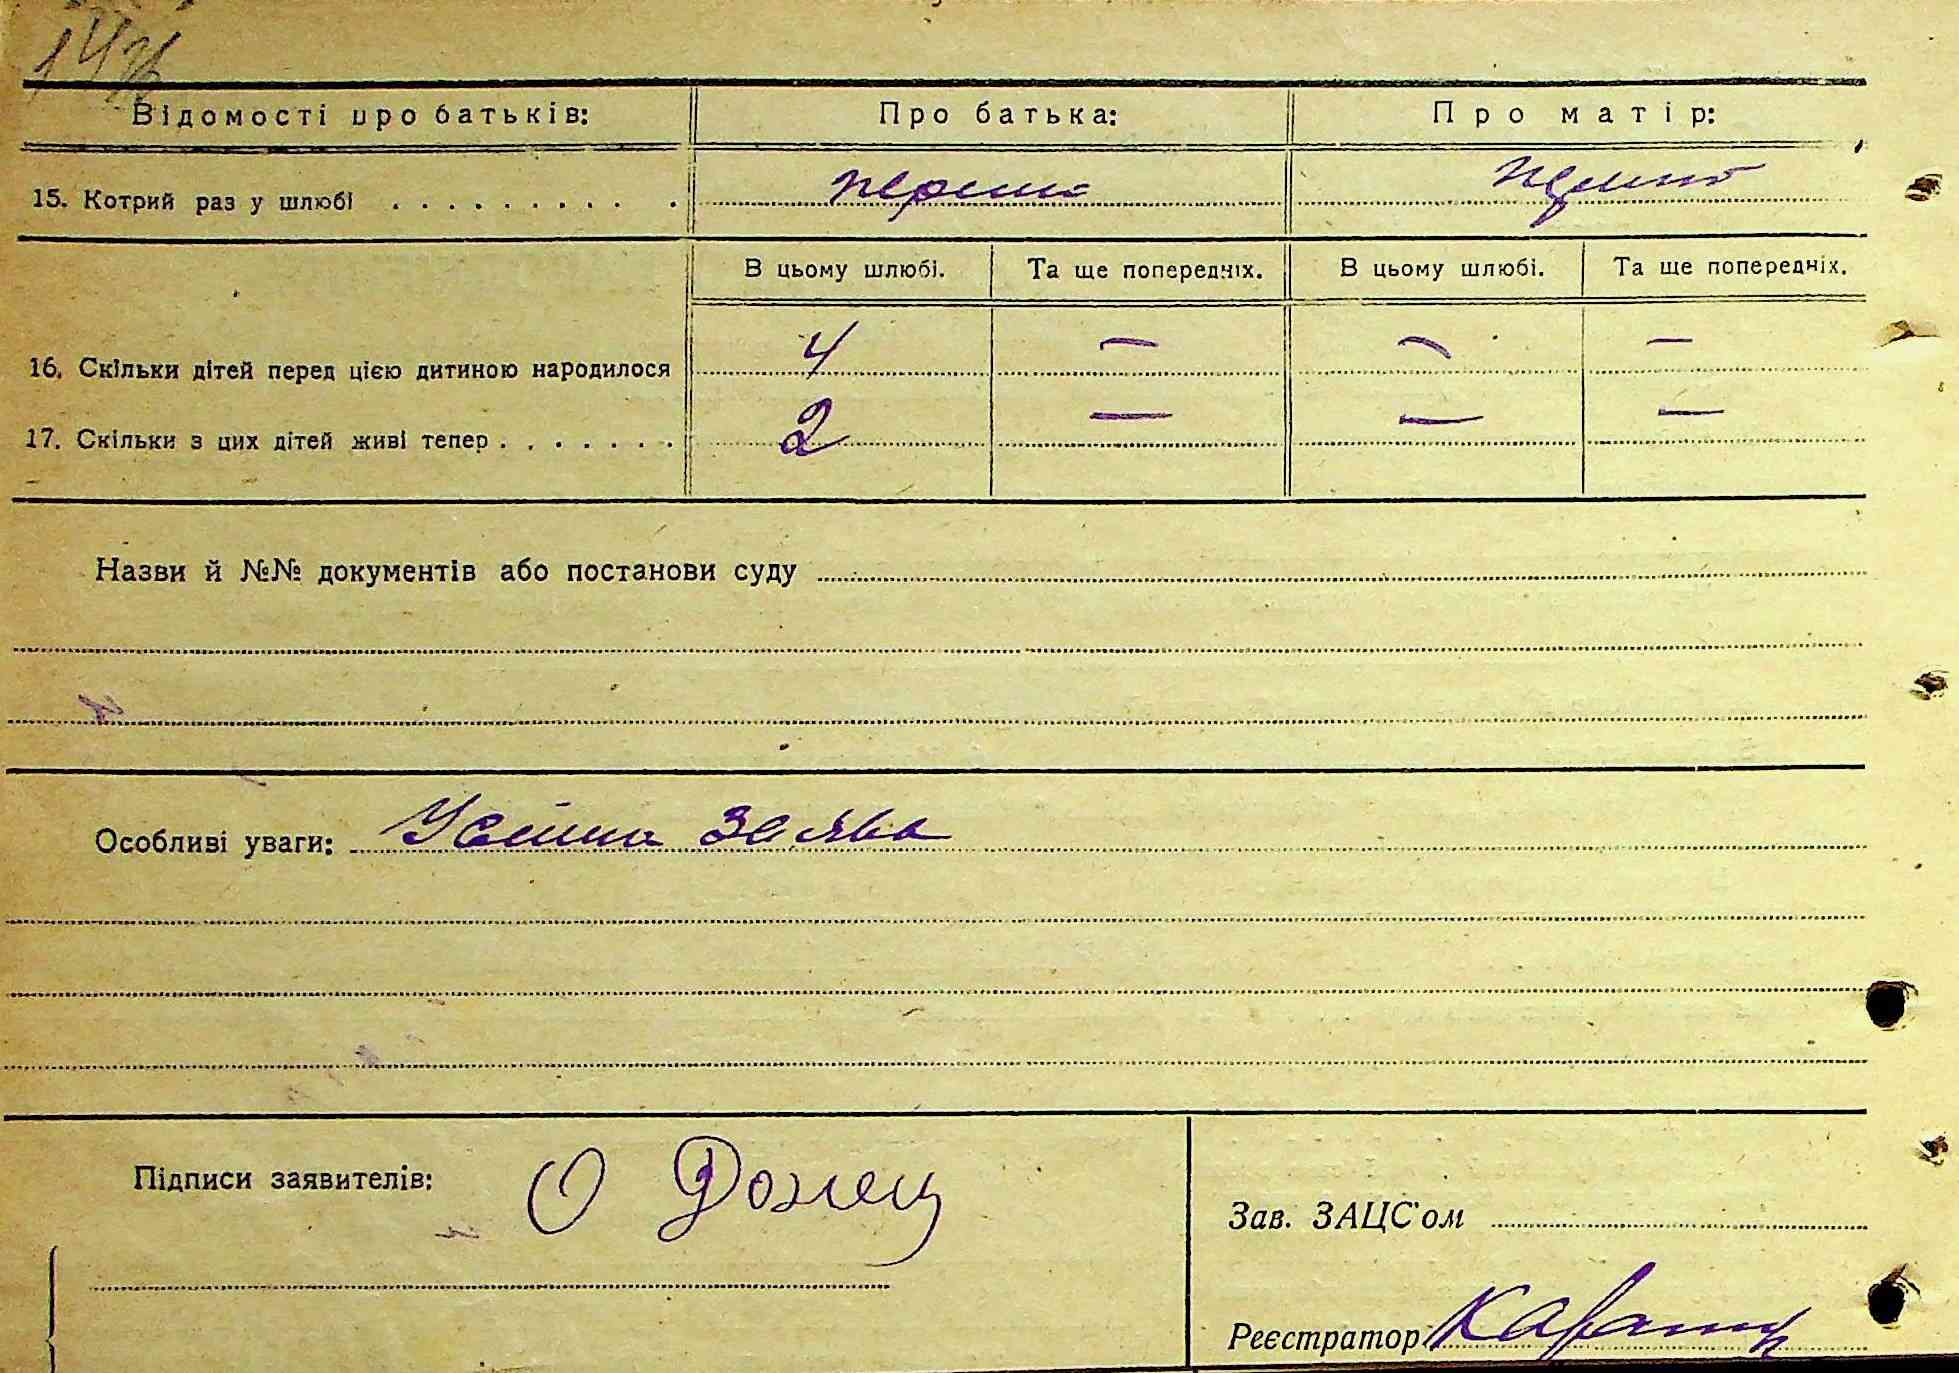 Відомості про батьків: Про батька: Про матір:
15. Котрий раз у шлюбі . . . . . . . . . . перший
В цьому шлюбі. Та ще попередніх. В цьому шлюбі. Та ще попередніх.
16. Скільки дітей перед цією дитиною народилося 4 — — —
17. Скільки з цих дітей живі тепер . . . . . . . 2 — — —
Назви й №№ документів або постанови суду
Особливі уваги: Усішна заява
Підписи заявителів: О Донец
Зав. ЗАЦС'ом
Реєстратор